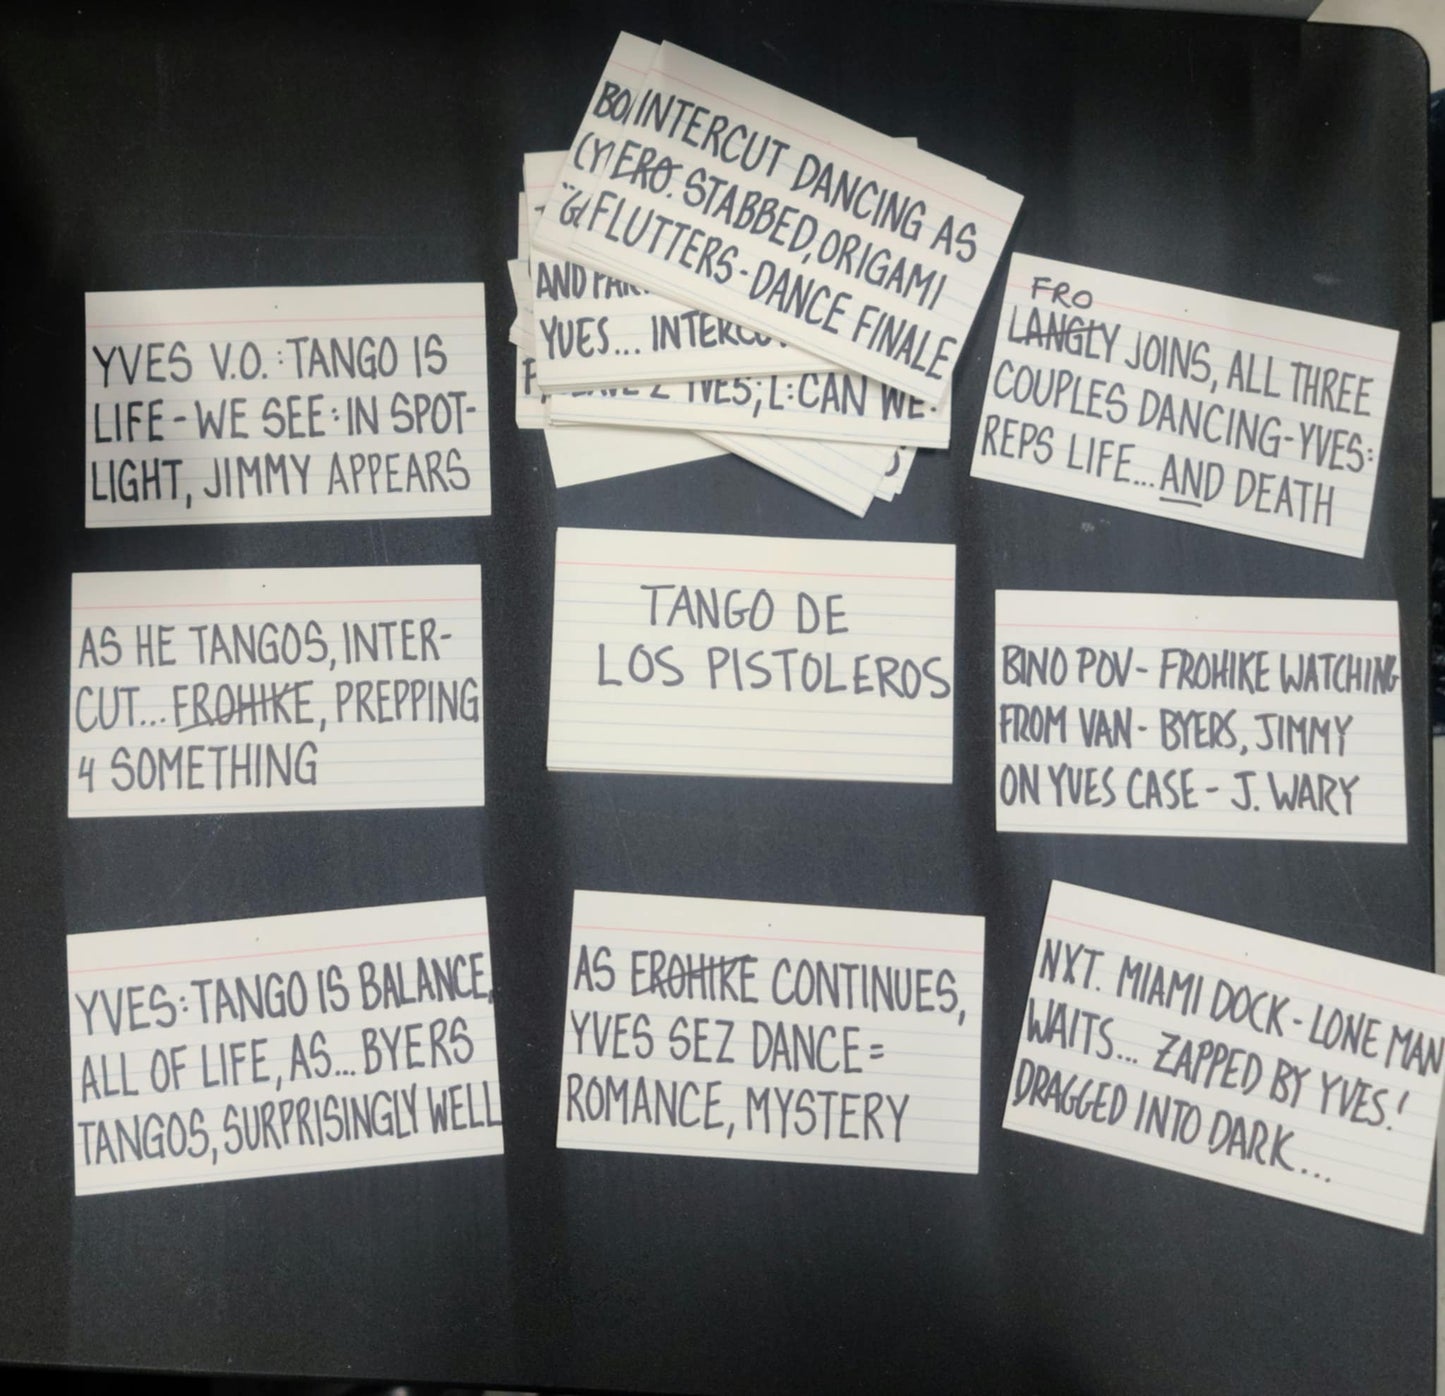 INTERCUT DANCING AS
FRO. STABBED, ORIGAMI
FLUTTERS - DANCE FINALE
AND
YVES...
YVES; L: CAN WE
YVES V.O.: TANGO IS
LIFE - WE SEE: IN SPOT-
LIGHT, JIMMY APPEARS
FRO
LANGLY JOINS, ALL THREE
COUPLES DANCING - YVES:
REPS LIFE... AND DEATH
AS HE TANGOS, INTER-
CUT... FROHIKE, PREPPING
4 SOMETHING
TANGO DE
LOS PISTOLEROS
BINO POV - FROHIKE WATCHING
FROM VAN - BYERS, JIMMY
ON YVES CASE - J. WARY
YVES: TANGO IS BALANCE,
ALL OF LIFE, AS... BYERS
TANGOS, SURPRISINGLY WELL
AS FROHIKE CONTINUES,
YVES SEZ DANCE =
ROMANCE, MYSTERY
NXT. MIAMI DOCK - LONE MAN
WAITS... ZAPPED BY YVES!
DRAGGED INTO DARK...